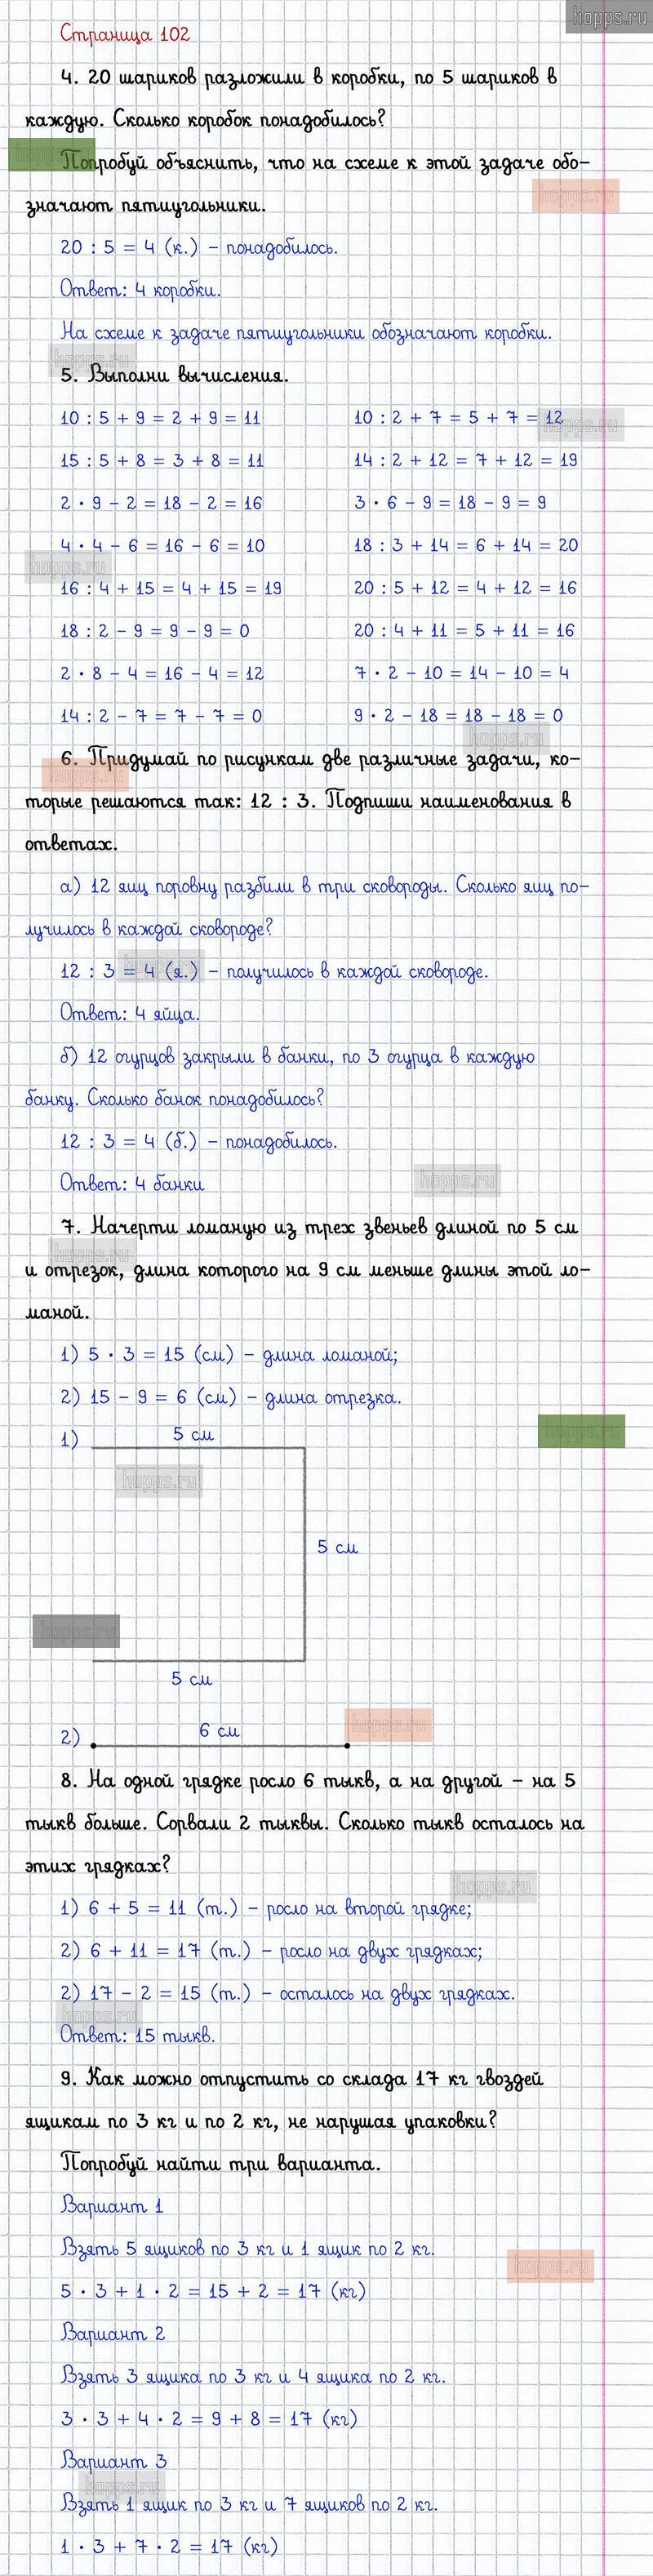 hopps.ru
Страница 102
4. 20 шариков разложили в коробки, по 5 шариков в
каждую. Сколько коробок понадобилось?
Попробуй объяснить, что на схеме к этой задаче обо-
значают пятиугольники.
hopps.ru
20 : 5 = 4 (к.) – понадобилось.
Ответ: 4 коробки.
На схеме к задаче пятиугольники обозначают коробки.
hopps.ru
5. Выполни вычисления.
10 : 5 + 9 = 2 + 9 = 11
10 : 2 + 7 = 5 + 7 = 12
hopps.ru
15 : 5 + 8 = 3 + 8 = 11
14 : 2 + 12 = 7 + 12 = 19
2 · 9 – 2 = 18 – 2 = 16
3 · 6 – 9 = 18 – 9 = 9
4 · 4 – 6 = 16 – 6 = 10
18 : 3 + 14 = 6 + 14 = 20
hopps.ru
16 : 4 + 15 = 4 + 15 = 19
20 : 5 + 12 = 4 + 12 = 16
18 : 2 – 9 = 9 – 9 = 0
20 : 4 + 11 = 5 + 11 = 16
2 · 8 – 4 = 16 – 4 = 12
7 · 2 – 10 = 14 – 10 = 4
14 : 2 – 7 = 7 – 7 = 0
9 · 2 – 18 = 18 – 18 = 0
hopps.ru
6. Придумай по рисункам две различные задачи, ко-
торые решаются так: 12 : 3. Подпиши наименования в
ответах.
а) 12 яиц поровну разбили в три сковороды. Сколько яиц по-
лучилось в каждой сковороде?
12 : 3 = 4 (я.) – получилось в каждой сковороде.
Ответ: 4 яйца.
б) 12 огурцов закрыли в банки, по 3 огурца в каждую
банку. Сколько банок понадобилось?
12 : 3 = 4 (б.) – понадобилось.
Ответ: 4 банки
hopps.ru
7. Начерти ломаную из трех звеньев длиной по 5 см
hopps.ru
и отрезок, длина которого на 9 см меньше длины этой ло-
маной.
1) 5 · 3 = 15 (см) – длина ломаной;
2) 15 – 9 = 6 (см) – длина отрезка.
1) 5 см
hopps.ru
5 см
hopps.ru
5 см
hopps.ru
2) 6 см
8. На одной грядке росло 6 тыкв, а на другой – на 5
тыкв больше. Сорвали 2 тыквы. Сколько тыкв осталось на
этих грядках?
hopps.ru
1) 6 + 5 = 11 (т.) – росло на второй грядке;
2) 6 + 11 = 17 (т.) – росло на двух грядках;
2) 17 – 2 = 15 (т.) – осталось на двух грядках.
hopps.ru
Ответ: 15 тыкв.
9. Как можно отпустить со склада 17 кг гвоздей
ящикам по 3 кг и по 2 кг, не нарушая упаковки?
Попробуй найти три варианта.
Вариант 1
Взять 5 ящиков по 3 кг и 1 ящик по 2 кг.
hopps.ru
5 · 3 + 1 · 2 = 15 + 2 = 17 (кг)
Вариант 2
Взять 3 ящика по 3 кг и 4 ящика по 2 кг.
3 · 3 + 4 · 2 = 9 + 8 = 17 (кг)
Вариант 3
hopps.ru
Взять 1 ящик по 3 кг и 7 ящиков по 2 кг.
1 · 3 + 7 · 2 = 17 (кг)